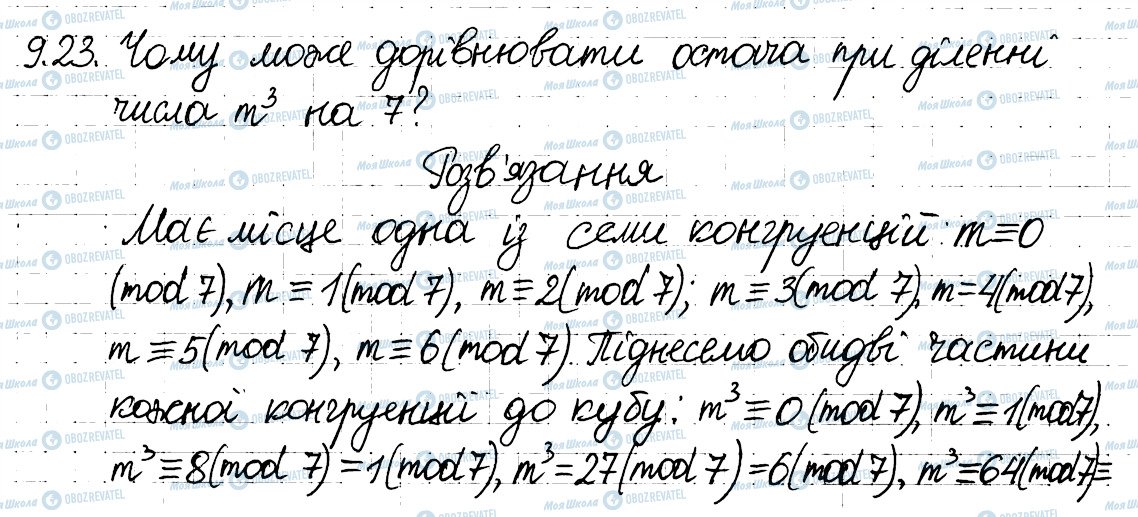 9.23. Чому може дорівнювати остача при діленні
числа m³ на 7?
Розв'язання
Має місце одна із семи конгруенцій: m≡0
(mod 7), m ≡ 1(mod 7), m ≡ 2(mod 7); m ≡ 3(mod 7), m=4(mod 7),
m ≡ 5(mod 7), m ≡ 6(mod 7) Піднесемо обидві частини
кожної конгруенції до кубу: m³ ≡ 0(mod 7), m³ ≡ 1(mod 7),
m³ ≡ 8(mod 7) = 1(mod 7), m³ = 27(mod 7) = 6(mod 7), m³ ≡ 64(mod 7) ≡